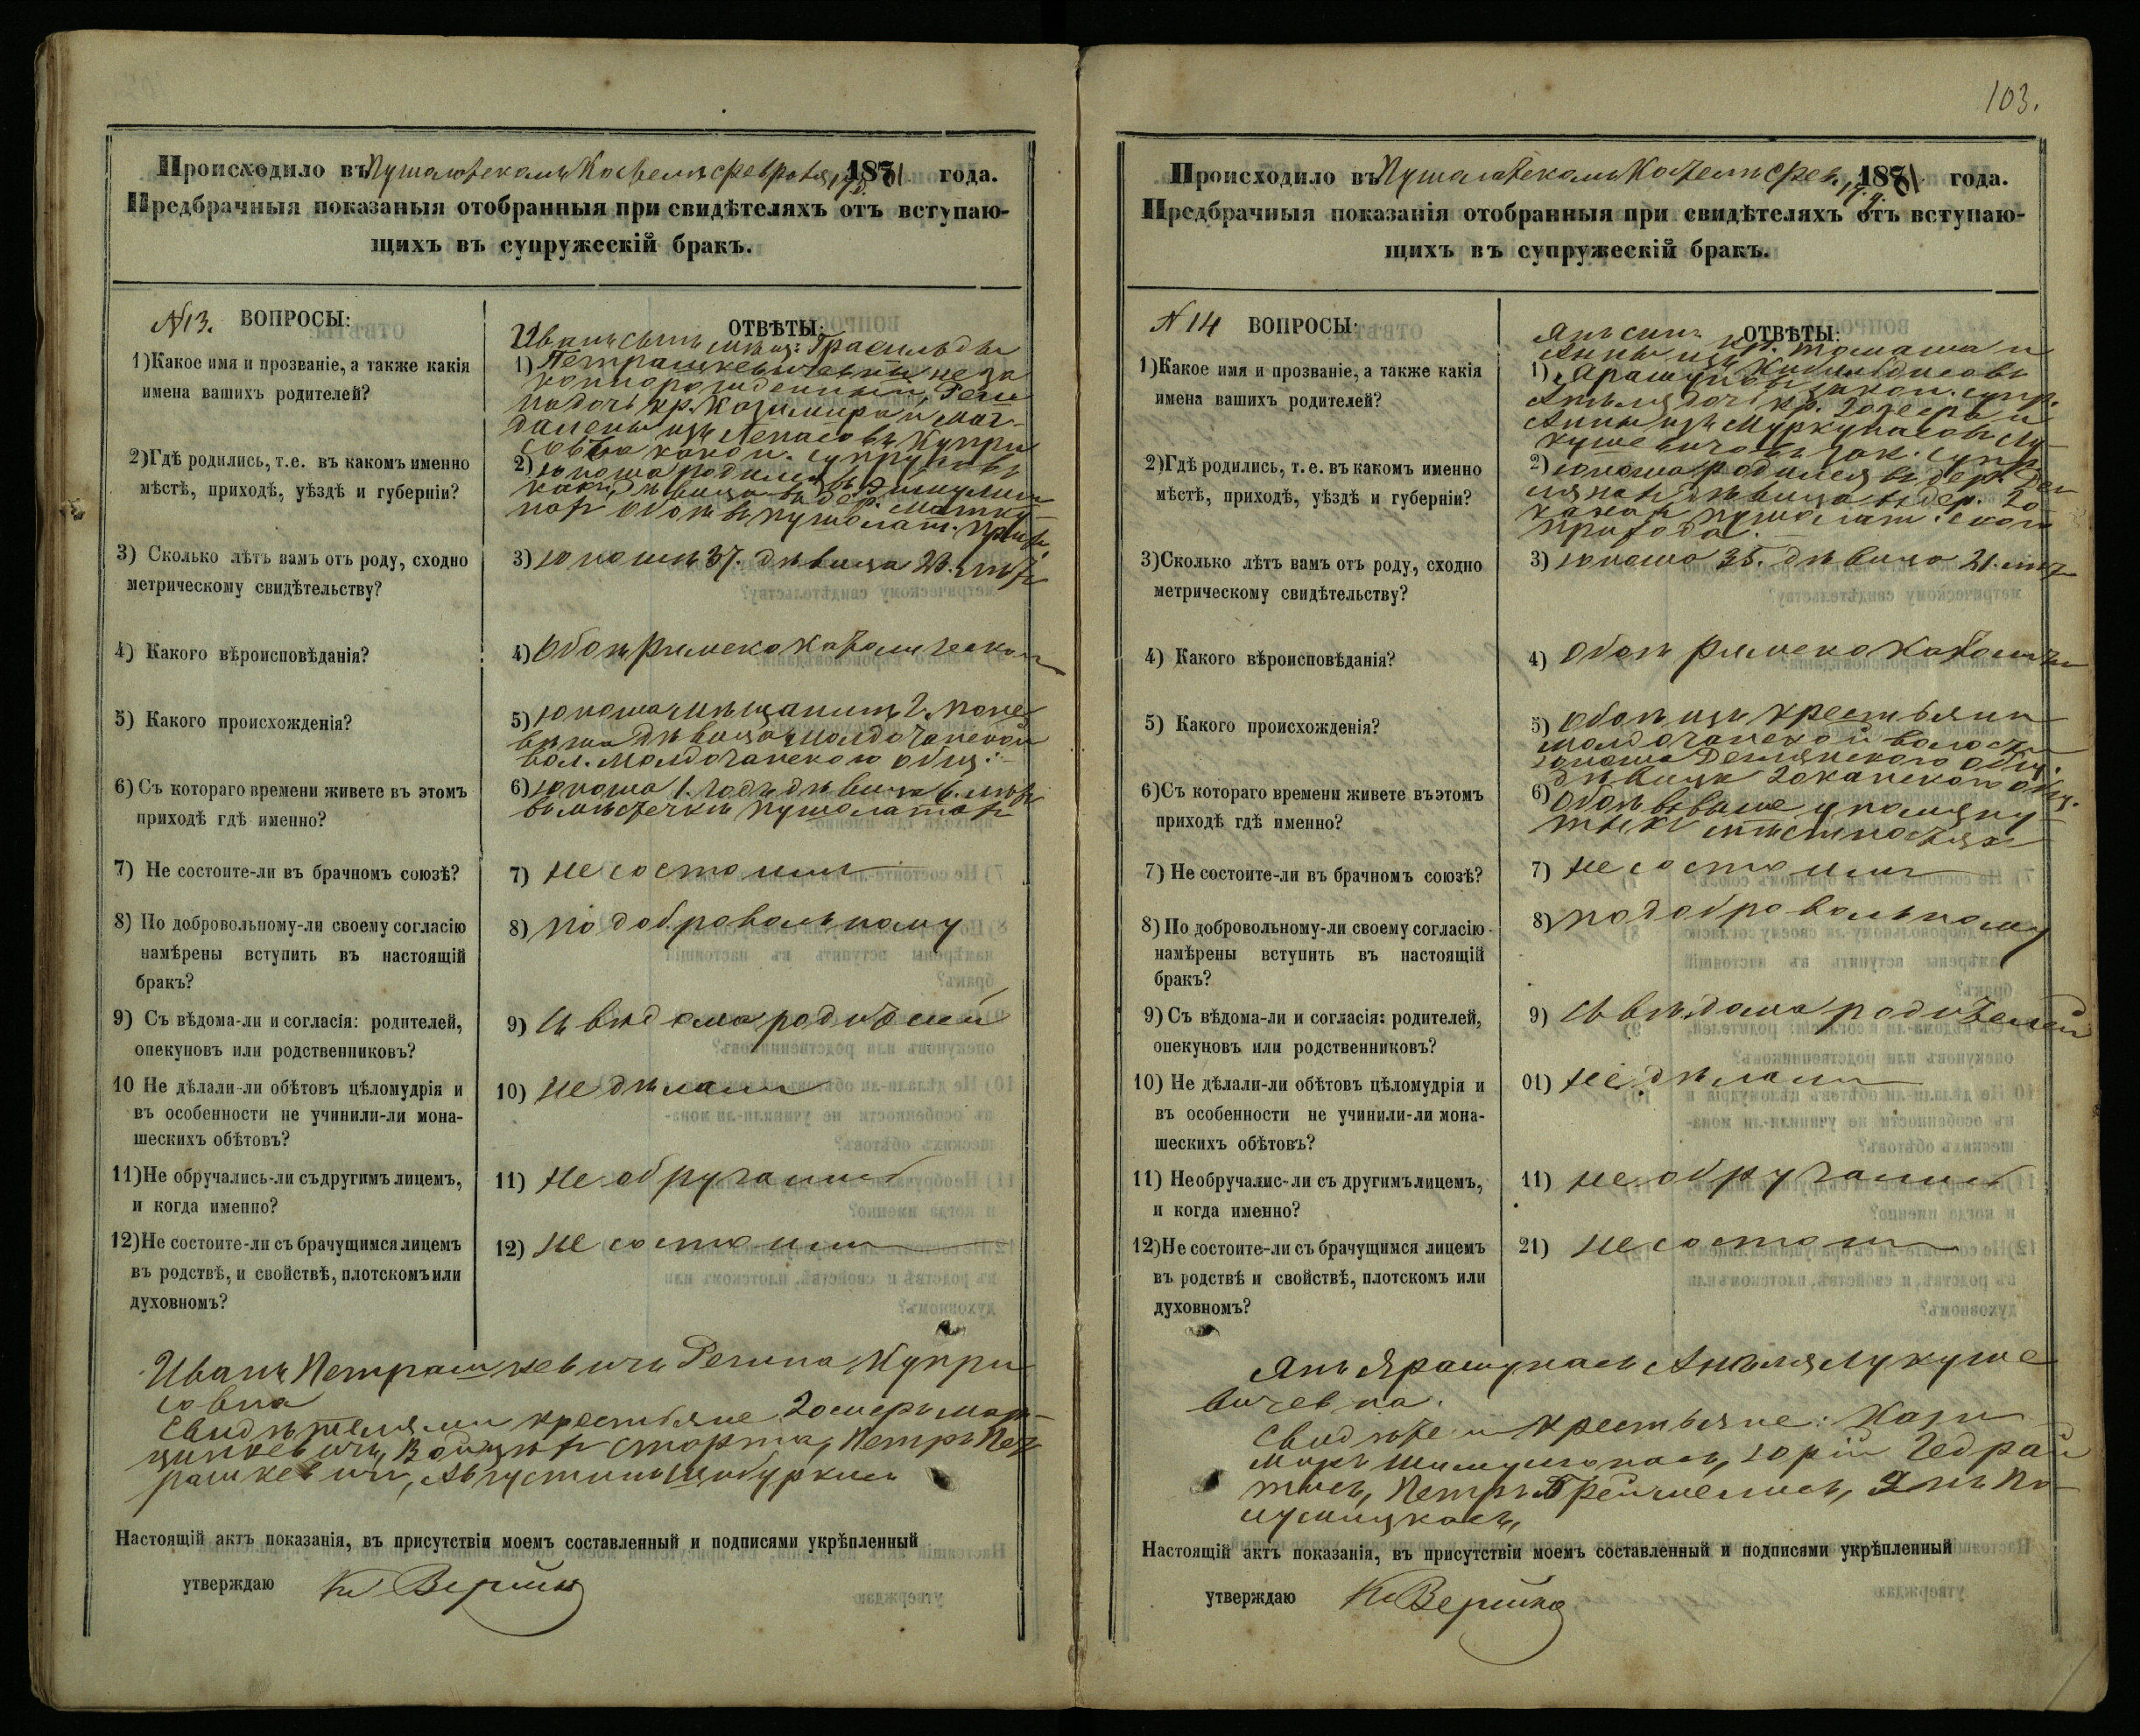 Происходило въ Пушолотскомъ Костелѣ февраля 17 д. 1881 года.
Предбрачныя показаныя отобранныя при свидѣтеляхъ отъ вступаю-
щихъ въ супружескій бракъ.
N13. ВОПРОСЫ:
1)Какое имя и прозваніе, а также какія
имена вашихъ родителей?
2)Гдѣ родились, т.е. въ какомъ именно
мѣстѣ, приходѣ, уѣздѣ и губерніи?
3) Сколько лѣтъ вамъ отъ роду, сходно
метрическому свидѣтельству?
4) Какого вѣроисповѣданія?
5) Какого происхожденія?
6) Съ котораго времени живете въ этомъ
приходѣ гдѣ именно?
7) Не состоите-ли въ брачномъ союзѣ?
8) По добровольному-ли своему согласію
намѣрены вступить въ настоящій
бракъ?
9) Съ вѣдома-ли и согласія: родителей,
опекуновъ или родственниковъ?
10 Не дѣлали-ли обѣтовъ цѣломудрія и
въ особенности не учинили-ли мона-
шескихъ обѣтовъ?
11)Не обручались-ли съ другимъ лицемъ,
и когда именно?
12)Не состоите-ли съ брачущимся лицемъ
въ родствѣ, и свойствѣ, плотскомъ или
духовномъ?
ОТВѢТЫ:
Иванъ сынъ
1) Петрашкевичевны неза
коннорожденный, Реги
на дочь кр. Казимира и Маг-
далены изъ Лепасовъ Купри
совъ закон. супруговъ
2) юноша родился въ
дѣвица въ дер.
обои въ Пушолат. прих.
3) юношѣ 37. дѣвица 23. лѣтъ
4) Обои Римско Католическаго
5) юноша мѣщанинъ г. Поне
вѣжа дѣвица Молдочанской
вол. Молдочанскаго общ.
6) юноша 1. годъ дѣвица 6. лѣтъ
въ мѣстечкѣ Пушолатахъ
7) не состоимъ
8) по добровольному
9) съ вѣдома родителей
10) не дѣлали
11) не обручались
12) не состоимъ
Иванъ Петрашкевичъ Регина Купри
совна
Свидѣтелями крестьяне Госперъ Мар-
цинкевичъ, Стор­та, Петръ Пет
рашкевичъ, Августинъ
Настоящій актъ показанія, въ присутствіи моемъ составленный и подписями укрѣпленный
утверждаю Кс Верыйко
103.
Происходило въ Пушолатскомъ Костелѣ Фев. 17 д. 1881 года.
Предбрачныя показанія отобранныя при свидѣтеляхъ отъ вступаю-
щихъ въ супружескій бракъ.
N 14 ВОПРОСЫ:
1)Какое имя и прозваніе, а также какія
имена вашихъ родителей?
2)Гдѣ родились, т. е. въ какомъ именно
мѣстѣ, приходѣ, уѣздѣ и губерніи?
3)Сколько лѣтъ вамъ отъ роду, сходно
метрическому свидѣтельству?
4) Какого вѣроисповѣданія?
5) Какого происхожденія?
6)Съ котораго времени живете въ этомъ
приходѣ гдѣ именно?
7) Не состоите-ли въ брачномъ союзѣ?
8) По добровольному-ли своему согласію
намѣрены вступить въ настоящій
бракъ?
9) Съ вѣдома-ли и согласія: родителей,
опекуновъ или родственниковъ?
10) Не дѣлали-ли обѣтовъ цѣломудрія и
въ особенности не учинили-ли мона-
шескихъ обѣтовъ?
11) Необручалис-ли съ другимъ лицемъ,
и когда именно?
12)Не состоите-ли съ брачущимся лицемъ
въ родствѣ и свойствѣ, плотскомъ или
духовномъ?
ОТВѢТЫ:
Янъ сынъ кр. Томаша и
Анны изъ
1) Ярашуновъ закон. супр.
Анеля дочь кр. Госпера и
Анны изъ Муркунасовъ Лу-
кушевичовъ зак. супр.
2) юноша родился въ дер.
дѣвица въ дер. Го
Пушолат. скаго
прихода.
3) юноша 35. дѣвица 21. лѣтъ
4) Обои Римско Католич
5) Обои изъ крестьянъ
Молдочанской волости
юноша общ.
дѣвица Гоканскаго общ.
6) Обои въ выше упомяну
тыхъ мѣстностяхъ
7) не состоимъ
8) по добровольному
9) съ вѣдома родителей
01) не дѣлали
11) не обручались
21) не состоимъ
Янъ Ярашунасъ Анеля Лукуше
вичевна.
Свидѣтели крестьяне: Кази
миръ Шимулюнасъ, Юрій Гедрай
тисъ, Петръ Янъ По-

Настоящій актъ показанія, въ присутствіи моемъ составленный и подписями укрѣпленный
утверждаю Кс Верыйко